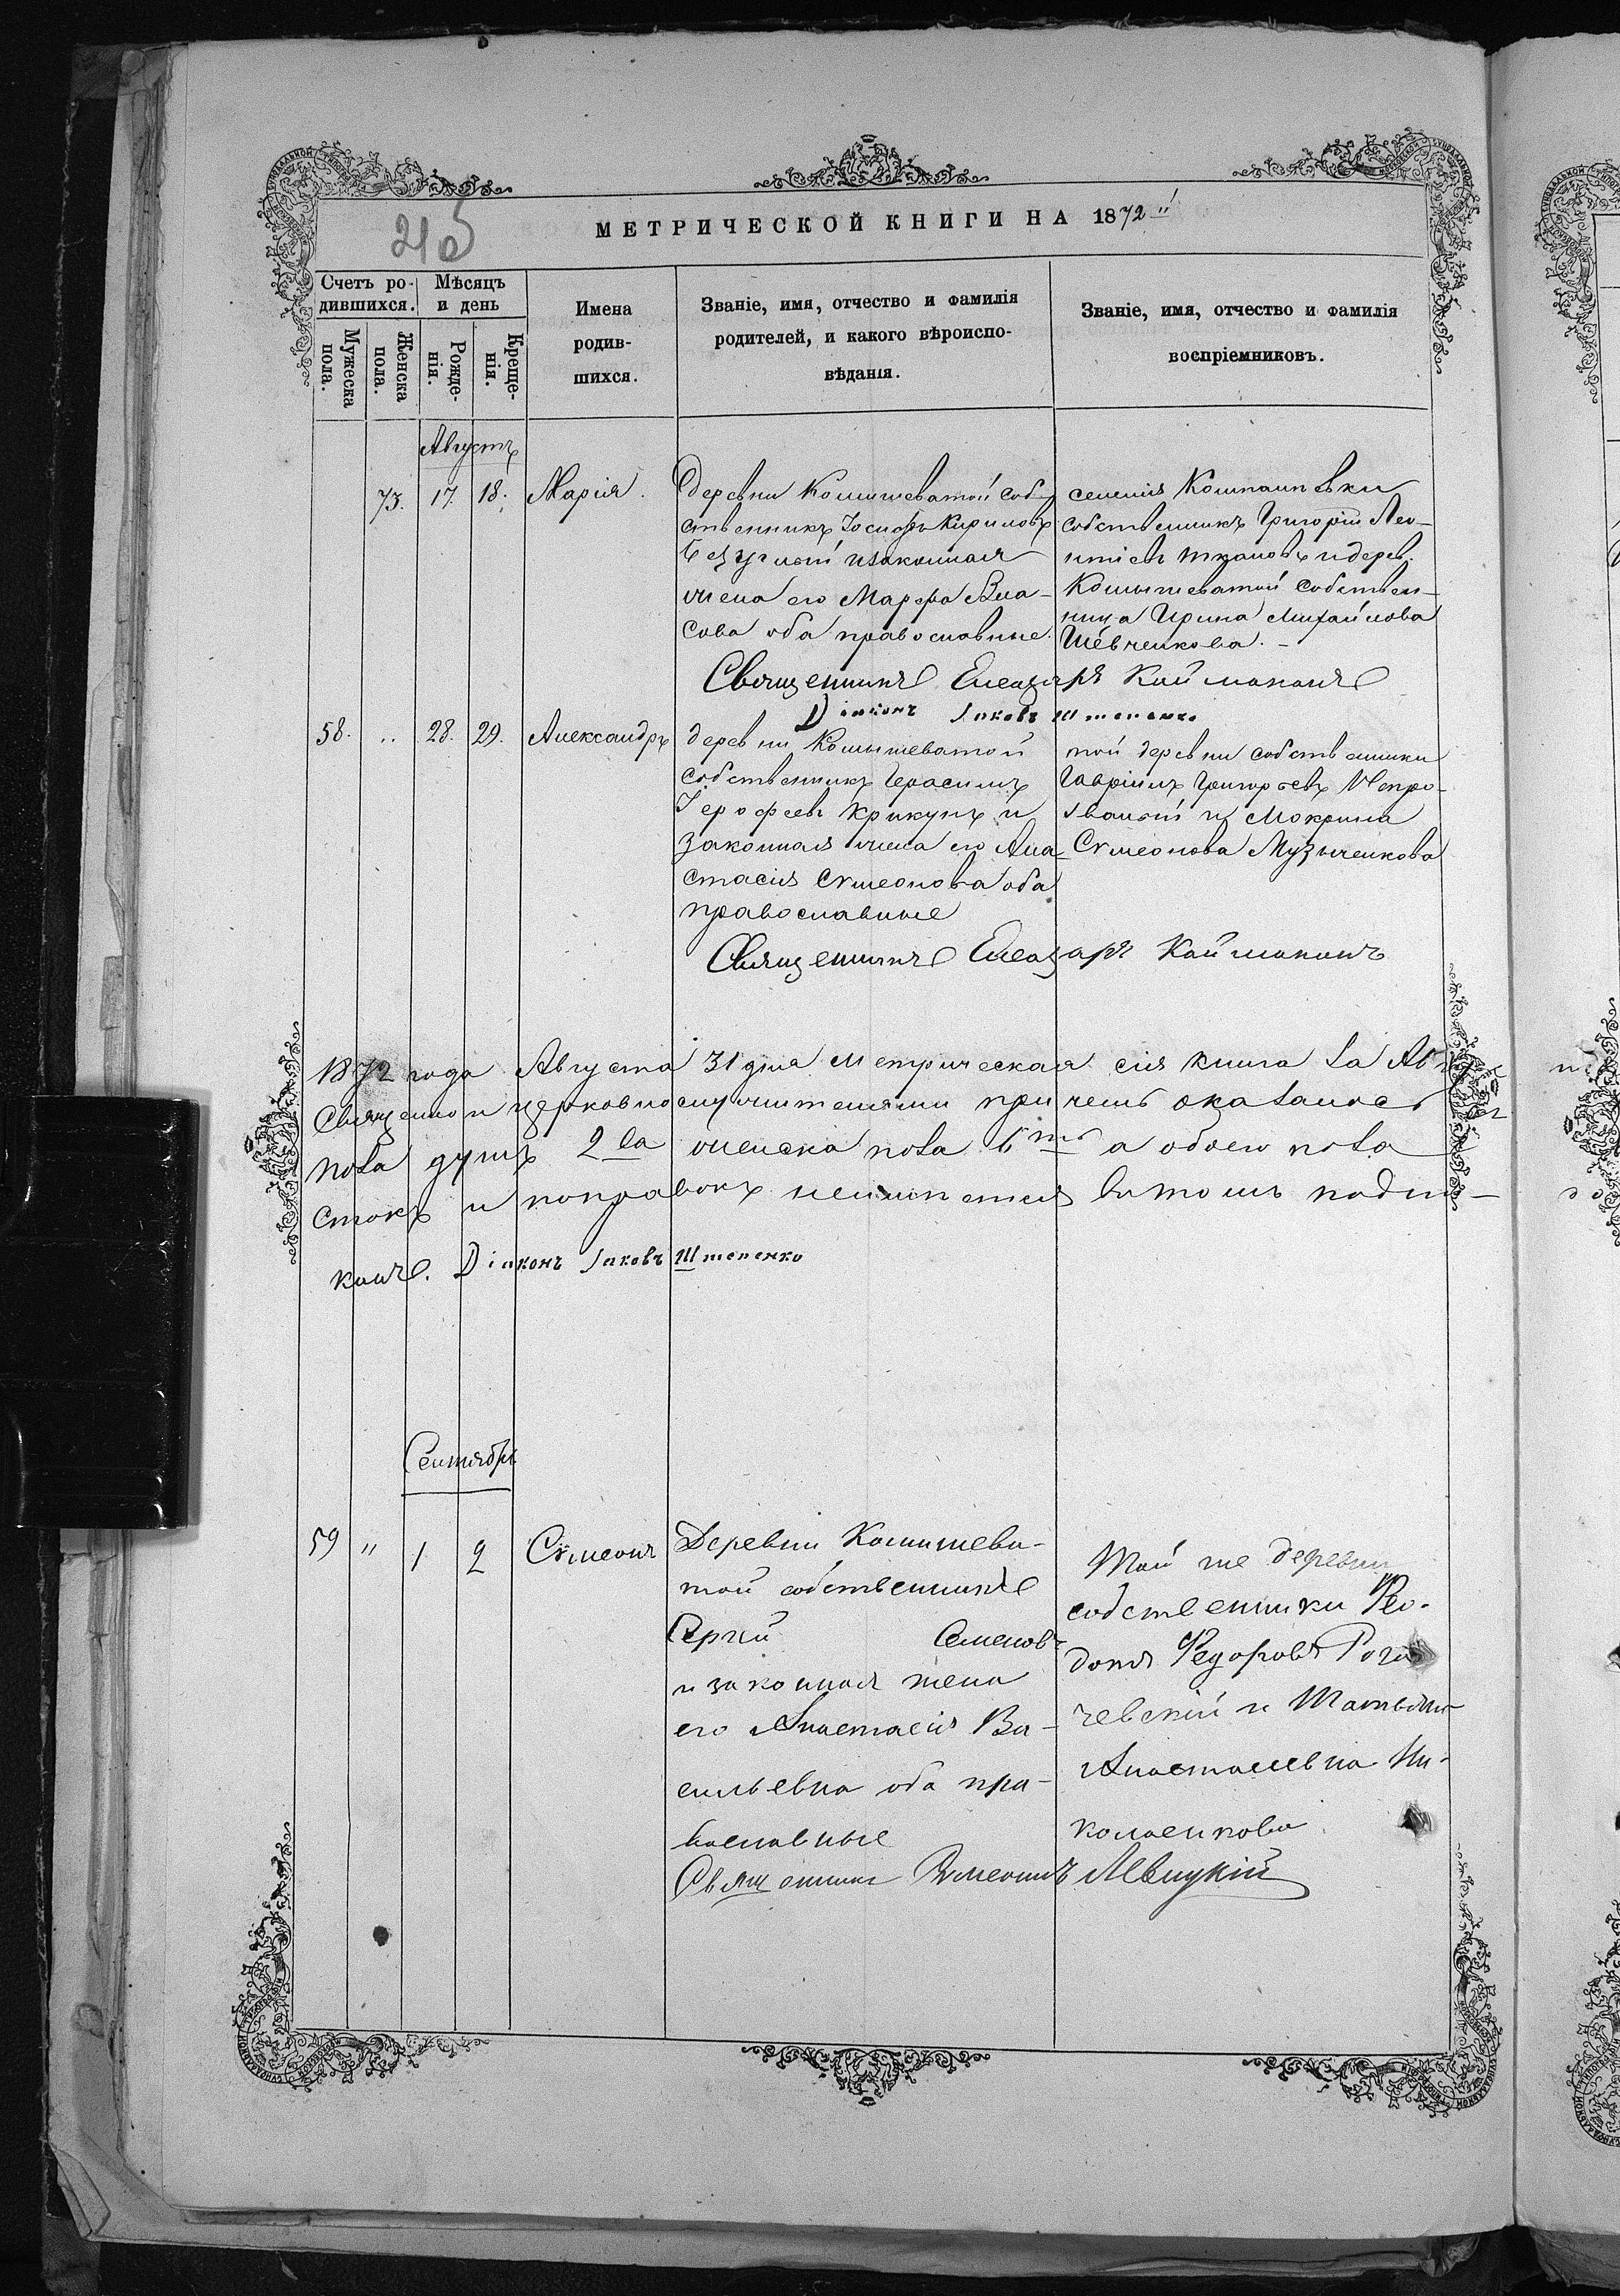 МЕТРИЧЕСКОЙ КНИГИ НА 1872
Счетъ ро-
дившихся.
Мѣсяцъ
и день
Мужеска
пола.
Женска
пола.
Рожде-
нія.
Креще-
нія.
Имена
родив-
шихся.
Званіе, имя, отчество и фамилія
родителей, и какого вѣроиспо-
вѣданія.
Званіе, имя, отчество и фамилія
воспріемниковъ.
Августъ
73. 17. 18. Марія.
Деревни Комышеватой соб-
ственникъ Іосифъ Кириловъ
Безуглый и законная
жена его Марфа Вла-
сова оба православные.
селенія Компанѣвки
собственникъ Григорій Лео-
нтіевъ и дерев.
Комышеватой собствен-
ница Ирина Михайлова
Шевченкова. -
Священникъ Елеазаръ Каймаканъ
Діаконъ Іаковъ Штепенко
58. .. 28. 29. Александръ
деревни Комышеватой
собственникъ Герасимъ
Іерофеевъ Крикунъ и
законная жена его Ана-
стасія Сѵмеонова оба
православные
той деревни собственники
Гавріилъ Григорьевъ Непро-
званый и Мокрина
Сѵмеонова Музыченкова
Священникъ Елеазаръ Каймаканъ
1872 года Августа 31 дня Метрическая сія книга за Ав
Священно и церковнослужителями при чемъ оказалось
пола душъ 2ва женска пола 6ть а обоего пола
стокъ и поправокъ неимѣется въ томъ подпи-
канъ. Діаконъ Іаковъ Штепенко
Сентябрь
59 " 1 2 Сѵмеонъ
Деревни Комишева-
той собственникъ
Сергій Семеновъ
и законная жена
его Анастасія Ва-
сильевна оба пра-
вославные
Той же деревни
собственники Фео-
дотъ Федоровъ Рога-
чевскій и Татьяна
Анастасіевна Ни-
колаенкова
Священникъ Сѵмеонъ Левицкій